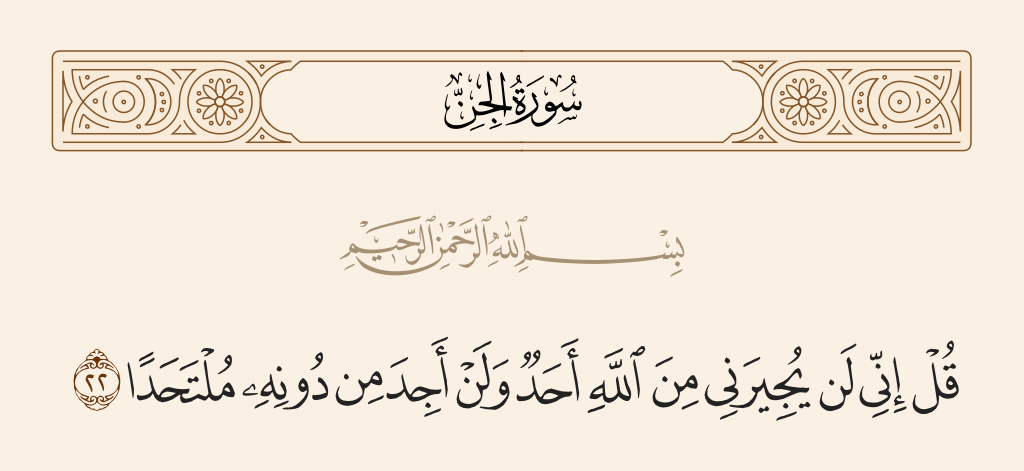 سُورَةُ الجِنِّ
بِسْمِ ٱللَّهِ ٱلرَّحْمَٰنِ ٱلرَّحِيمِ
قُلْ إِنِّى لَن يُجِيرَنِى مِنَ ٱللَّهِ أَحَدٌ وَلَنْ أَجِدَ مِن دُونِهِۦ مُلْتَحَدًا ٢٢